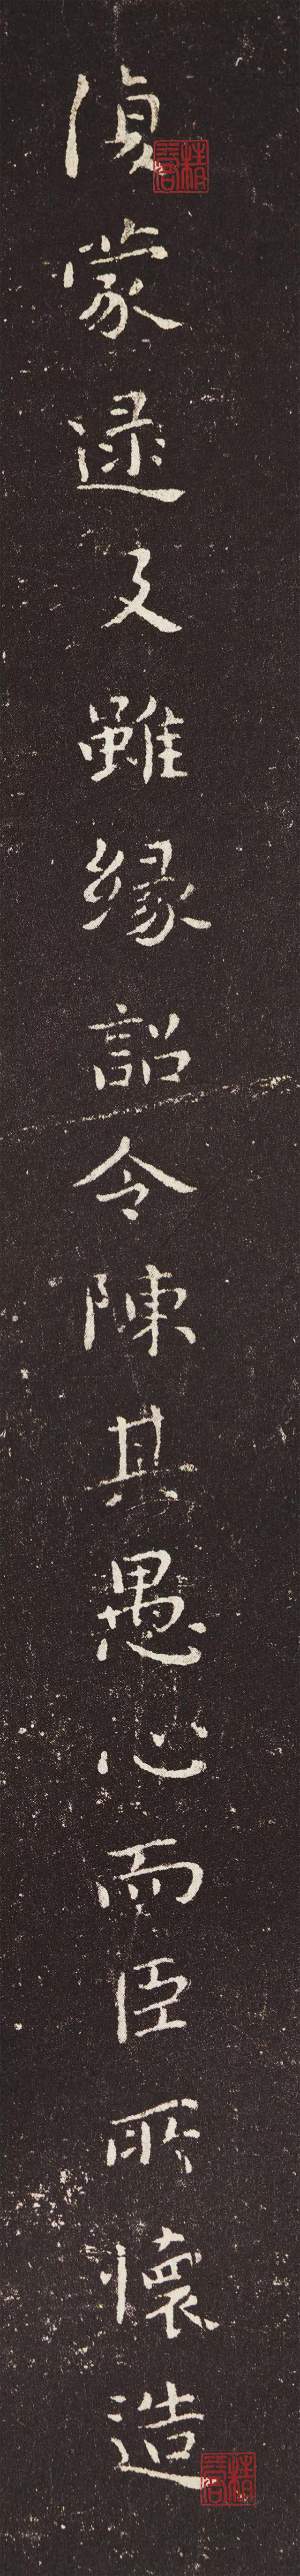 復蒙逮及雖緣詔令陳其愚心而臣所懷造